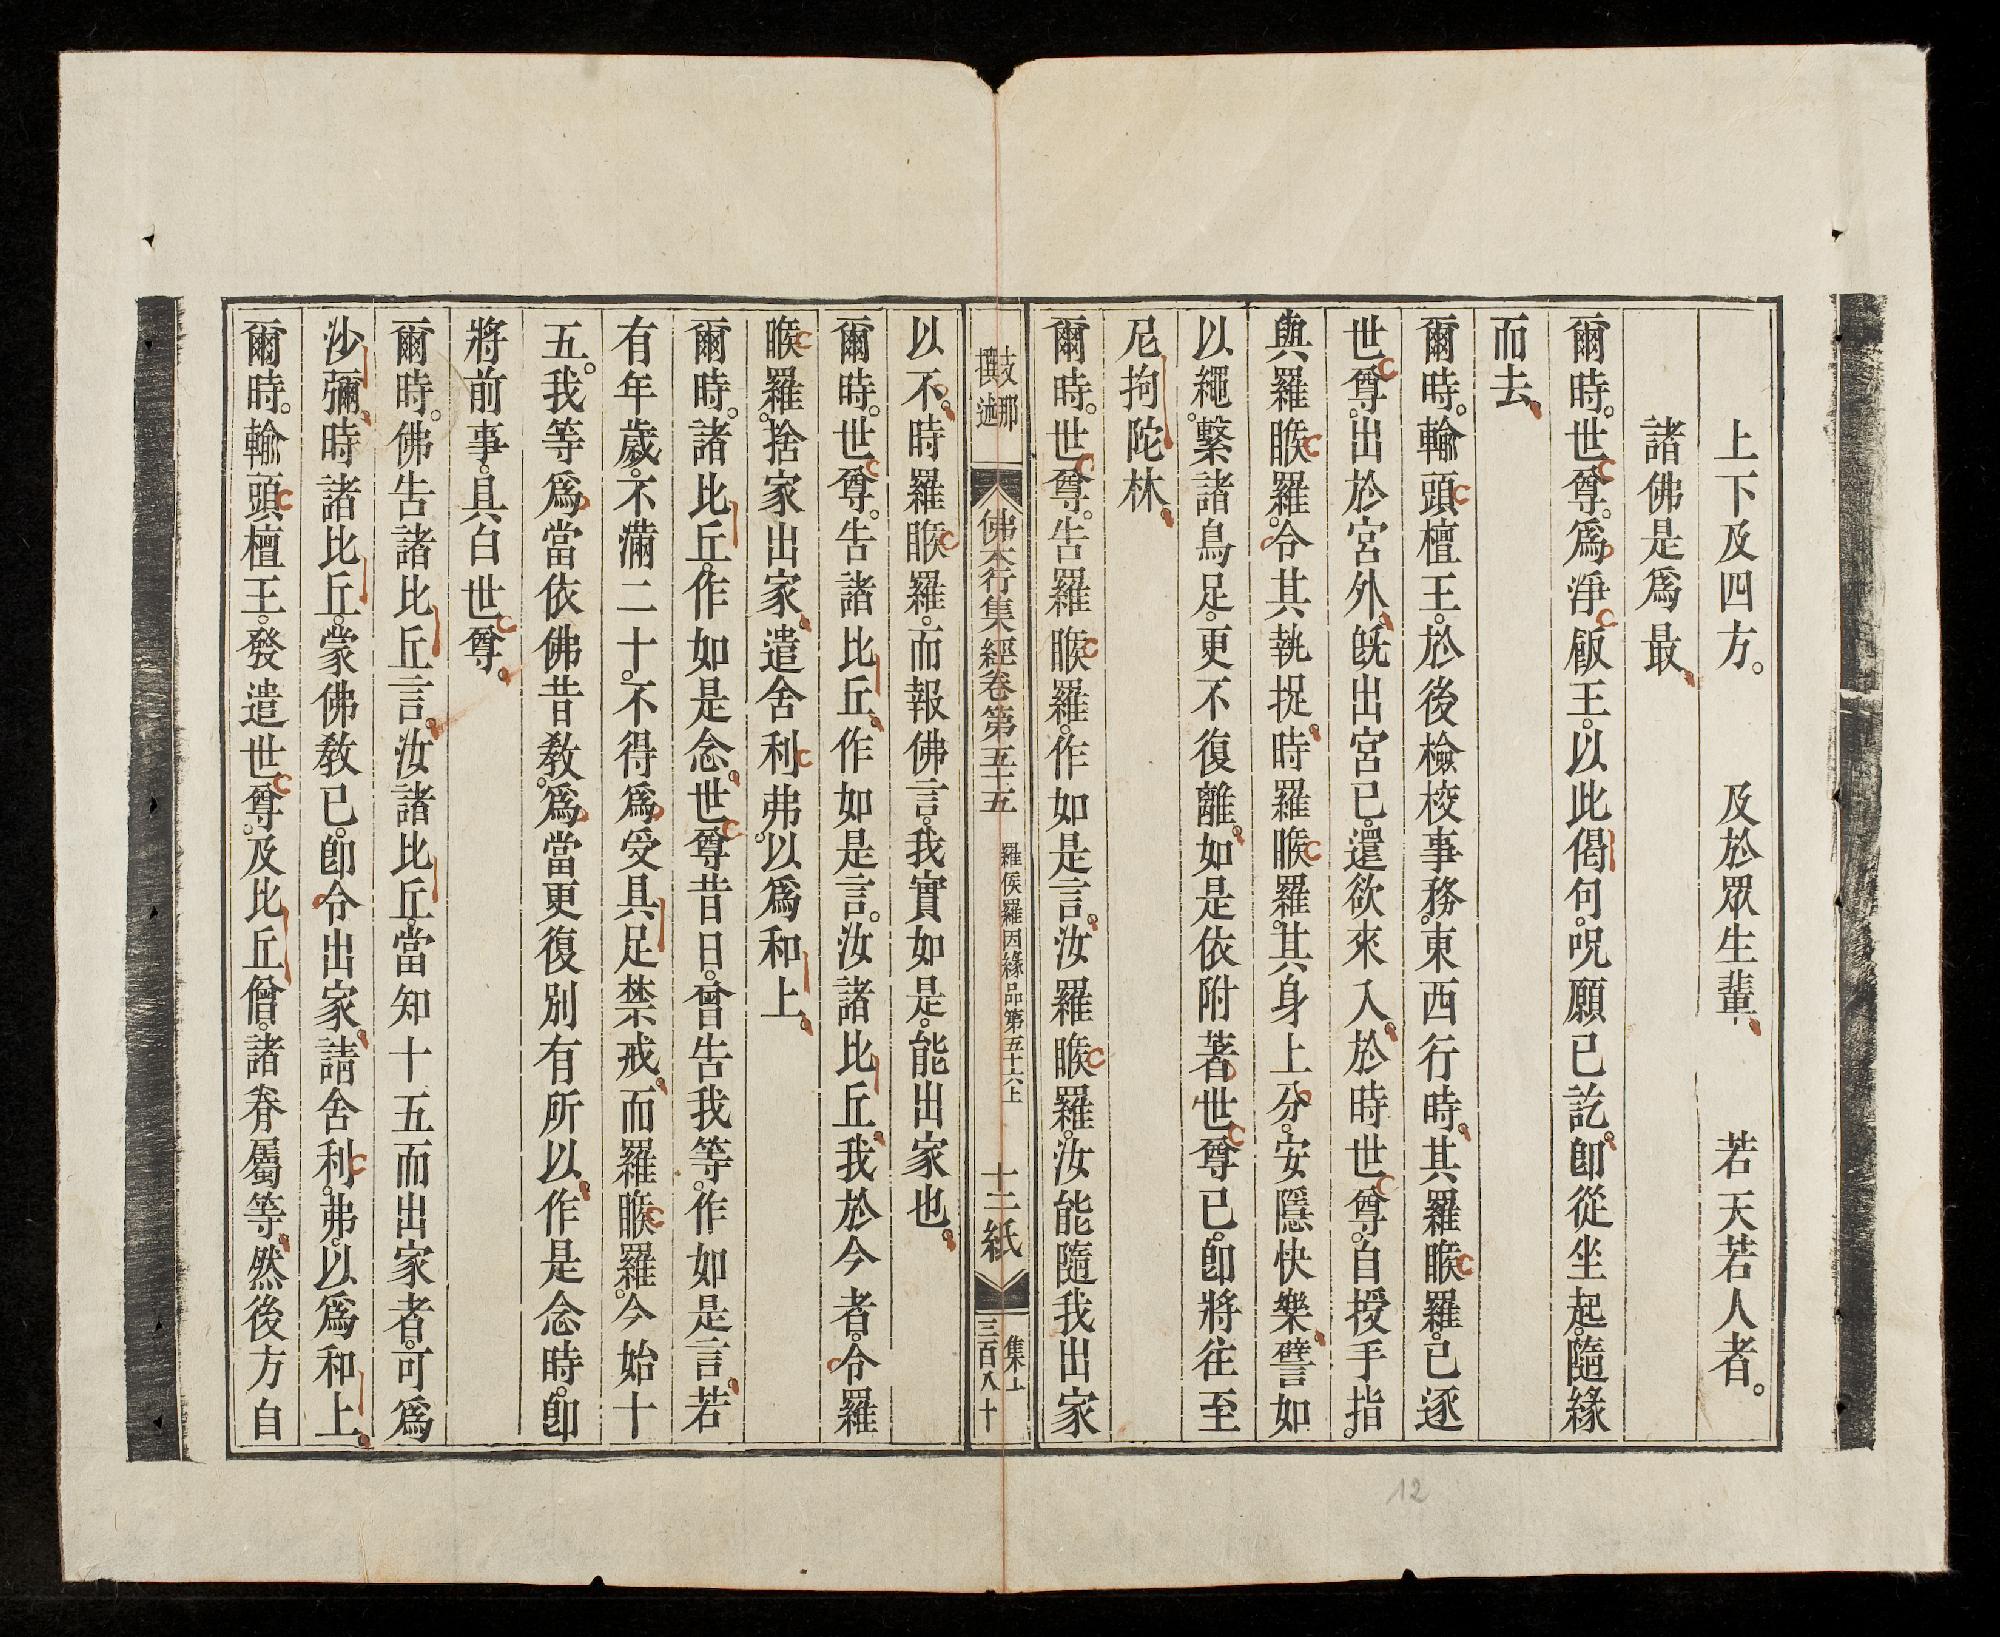 上下及四方。　及於眾生輩　若天若人者。
諸佛是爲最
爾時。世尊。爲淨飯王。以此偈句。呪願已訖。卽從坐起。隨緣
而去。
爾時。輸頭檀王。於後檢校事務。東西行時。其羅睺羅。已逐
世尊。出於宮外。旣出宮已。還欲來入。於時世尊。自授手指。
與羅睺羅。令其執捉。時羅睺羅。其身上分。安隱快樂。譬如
以繩。繫諸鳥足。更不復離。如是依附著世尊已。卽將往至
尼拘陀林。
爾時。世尊。告羅睺羅。作如是言。汝羅睺羅。汝能隨我出家
支那
撰述
佛本行集經卷第五十五
羅侯羅因緣品第五十六上
十二紙
集上
三百八十
以不。時羅睺羅。而報佛言。我實如是。能出家也。
爾時。世尊。告諸比丘。作如是言。汝諸比丘。我於今者。令羅
睺羅。捨家出家。遣舍利弗。以爲和上。
爾時。諸比丘。作如是念。世尊昔日。曾告我等。作如是言。若
有年歲。不滿二十。不得爲受具足禁戒。而羅睺羅。今始十
五。我等爲當依佛昔敎。爲當更復別有所以。作是念時。卽
將前事。具白世尊。
爾時。佛告諸比丘言。汝諸比丘。當知十五而出家者。可爲
沙彌。時諸比丘。蒙佛敎已。卽令出家。請舍利弗。以爲和上。
爾時。輸頭檀王。發遣世尊。及比丘僧。諸眷屬等。然後方自
12